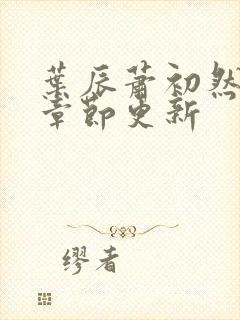 葉辰蕭初然
章節更新
繆者